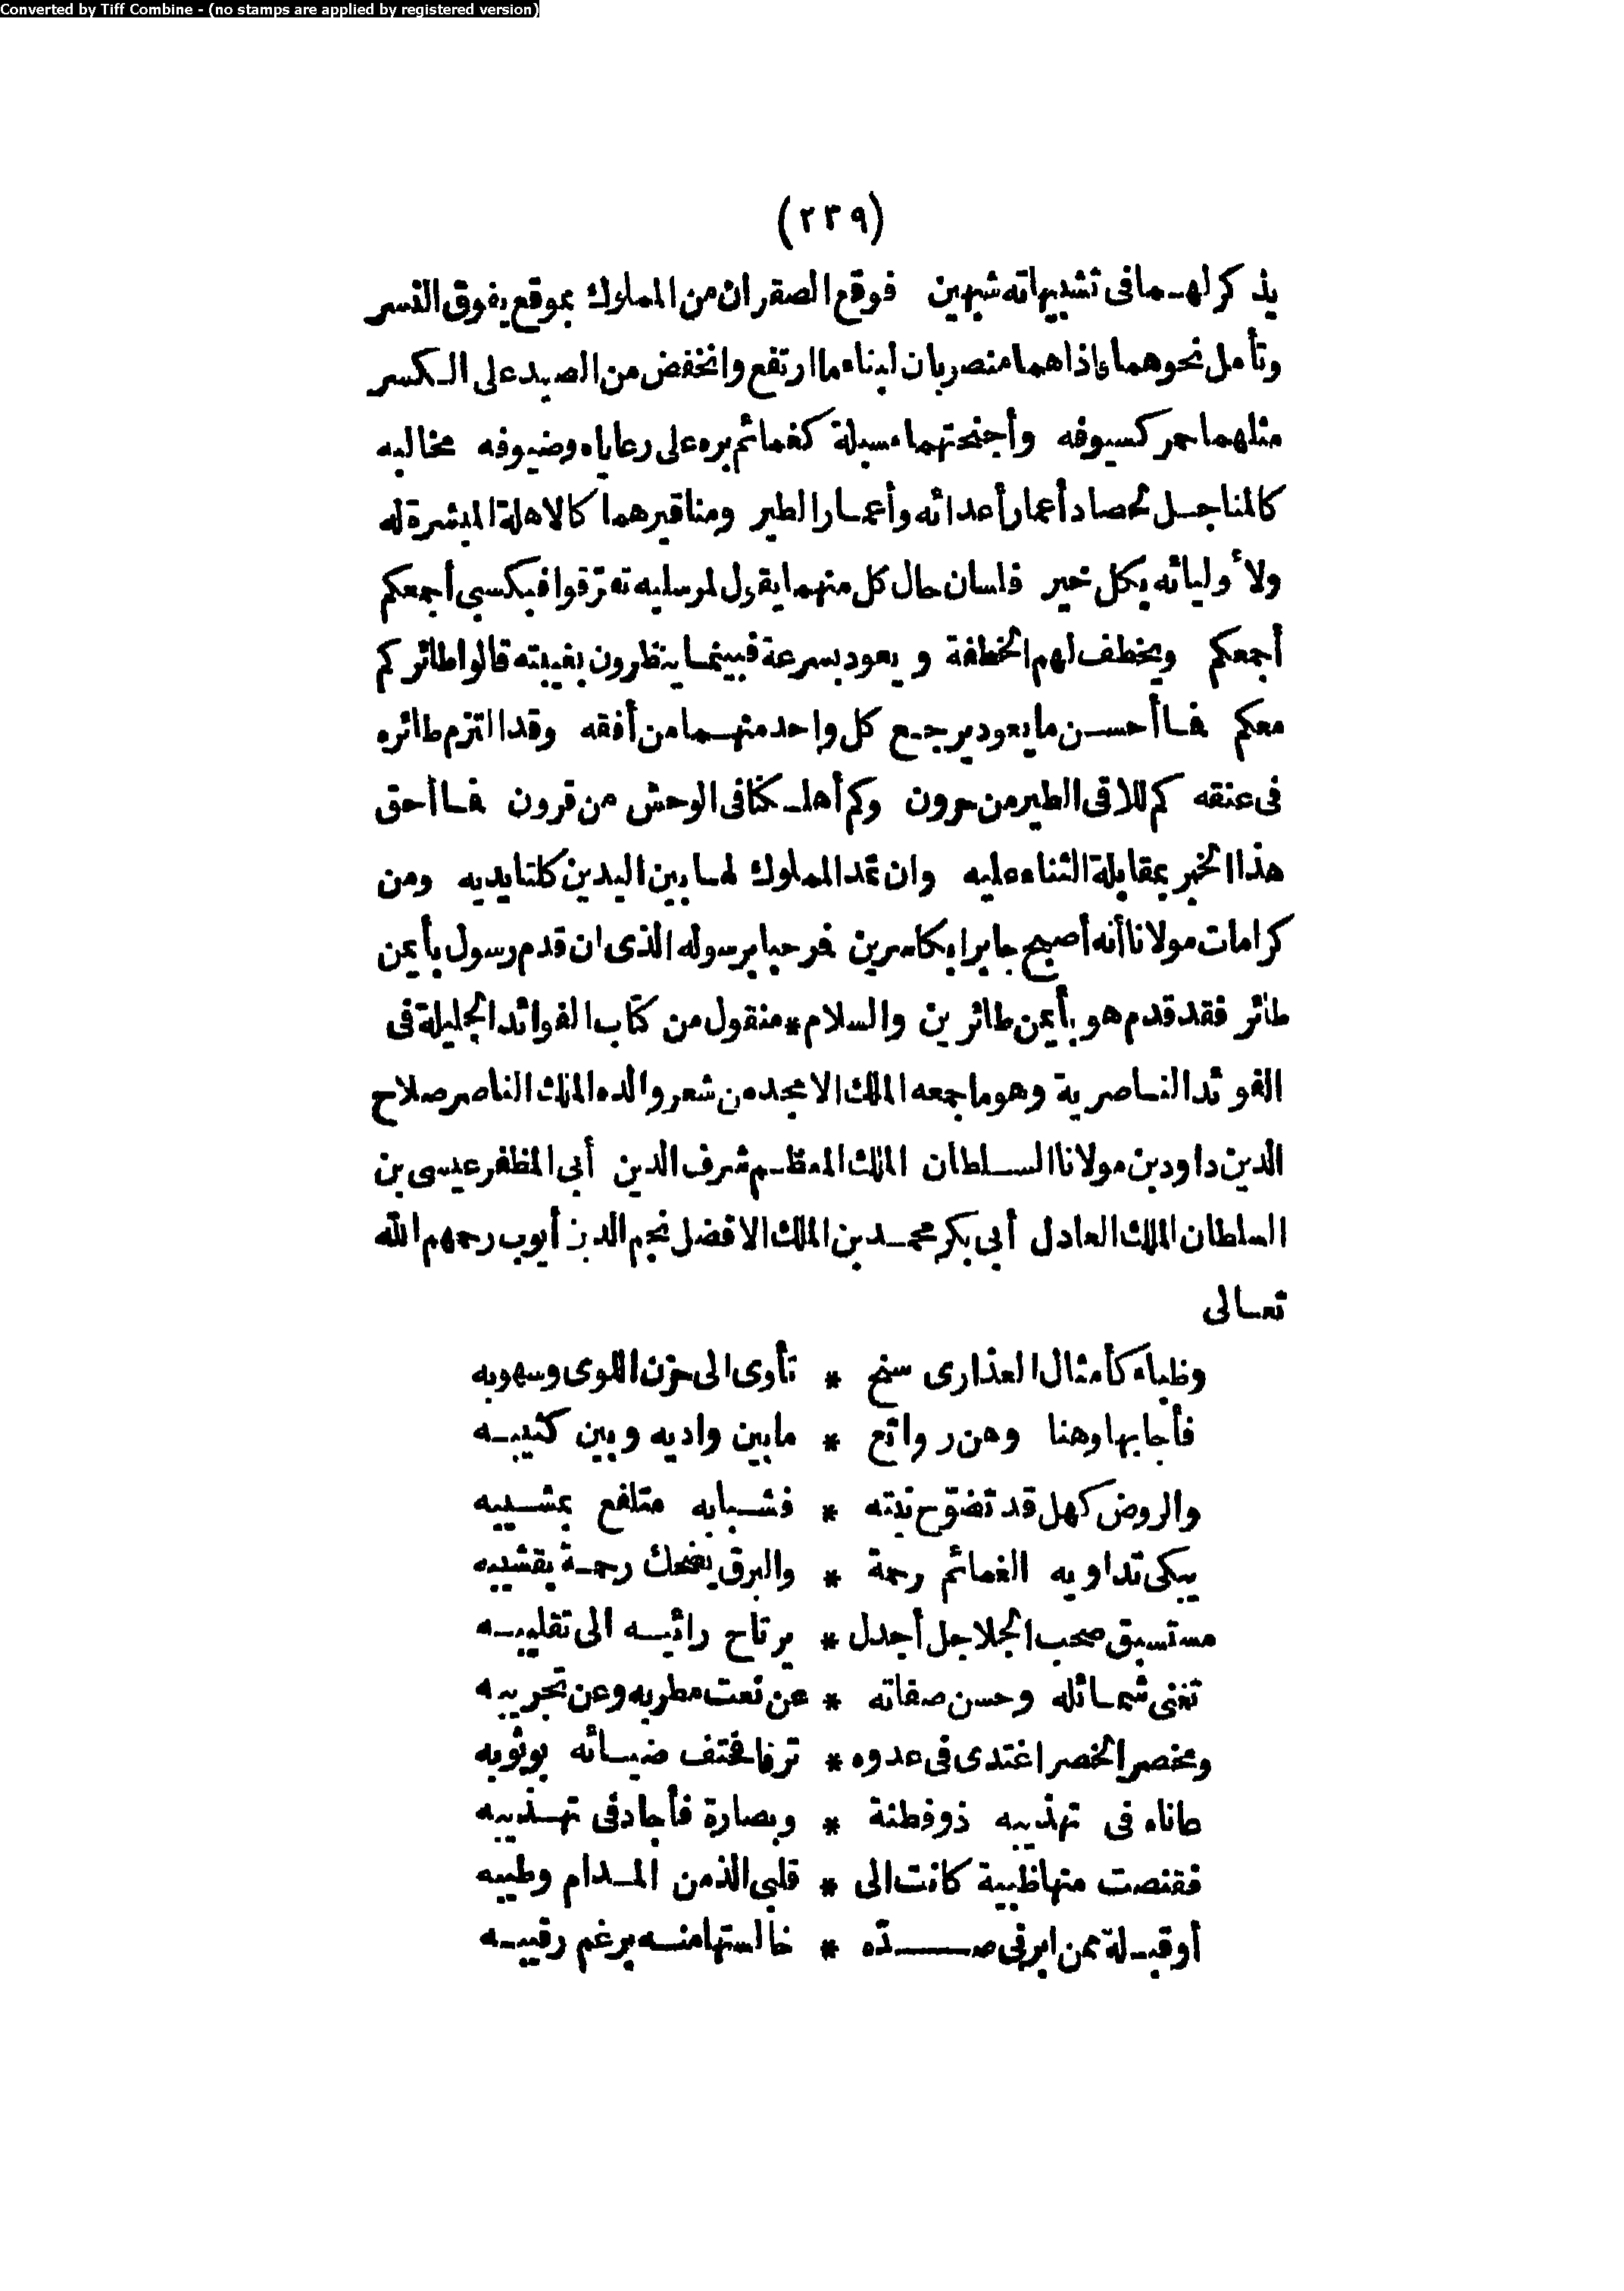 Converted by Tiff Combine - (no stamps are applied by registered version)
(٢٣٩)
يذكر لهما فى تشبيهاته شبهين فوقع الصقران من المملوك بموقع يفوق النسر
وتأمل نحوهما فاذاهما منصربان لبناء ما ارتفع وانخفض من الصيد على الكسر
مثلهما حمر كسيوفه وأجنحتهما مسبلة كغمائم بره على رعاياه وضيوفه مخالبه
كالمناجل لحصاد أعمار أعدائه وأعمار الطير ومناقيرهما كالاهلة المبشرة له
ولأوليائه بكل خير فلسان حال كل منهما يقول لمرسليه تفرقوا فبكسبى أجمعكم
أجمعكم ويخطف لهم الخطفة ويعود بسرعة فبينما ينظرون بغيبته قالوا طائركم
معكم فما أحسن ما يعود يرجع كل واحد منهما من أفقه وقد التزم طائره
فى عنقه كم للاقى الطير من حرون وكم أهلكا فى الوحش من قرون فما أحق
هذا الخبر بمقابلة الثناء عليه وان مد المملوك لها بين اليدين كلتا يديه ومن
كرامات مولانا أنه أصبح جابرا بكاسرين فمرحبا برسوله الذى ان قدم رسول بأيمن
طائر فقد قدم هو بأيمن طائرين والسلام * منقول من كتاب الفوائد الجليلة فى
الفوئد الناصرية وهو ما جمعه الملك الامجد من شعر والده الملك الناصر صلاح
الدين داود بن مولانا السلطان الملك المعظم شرف الدين أبى المظفر عيسى بن
السلطان الملك العادل أبى بكر محمد بن الملك الافضل نجم الدين أيوب رحمهم الله
تعالى
وظباء كأمثال العذارى سنح * تأوى الى حزن اللوى وسهوبه
فأجابها وهنا وهن رواتع * ما بين واديه وبين كثيبه
والروض كهل قد تضوّح نبته * فشبابه متلفع بمشيبه
يبكى تداويه الغمائم رحمة * والبرق يضحك رحمة بقشيبه
مستسبق صحب الجلاجل أجدل * يرتاح رائيه الى تقليبه
تغنى شمائله وحسن صفاته * عن نعت مطريه وعن تجريبه
ومخصر الخصر اغتدى فى عدوه * ضيائه بوثوبه
عاناه فى تهذيبه ذو فطنة * وبصارة فأجاد فى تهذيبه
فقنصت منها ظبية كانت الى * قلبى الذمن المدام وطيبه
أو قبلة ممن ابر فى صدّه * خالستها منه برغم رقيبه